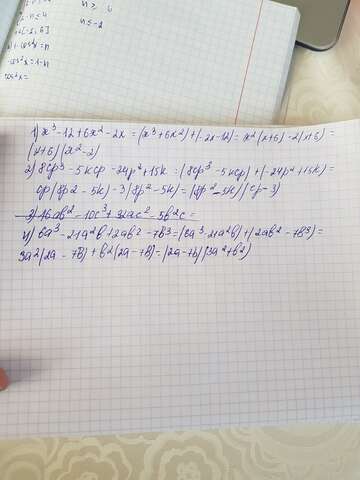 n ≥ 6
-n ≤ 4
n ≤ -2
-cos²x = 1-n
cos²x =
1) x³-12+6x²-2x = (x³+6x²)+(-2x-12) = x²(x+6)-2(x+6) =
(x+6)(x²-2)
2) 8cp³-5kcp-24p²+15k = (8cp³-5kcp)+(-24p²+15k) =
cp(8p²-5k)-3(8p²-5k) = (8p²-5k)(cp-3)
3) 16ab²-10c³+32ac²-5b²c =
4) 6a³-21a²b+2ab²-7b³ = (6a³-21a²b)+(2ab²-7b³) =
3a²(2a-7b)+b²(2a-7b) = (2a-7b)(3a²+b²)